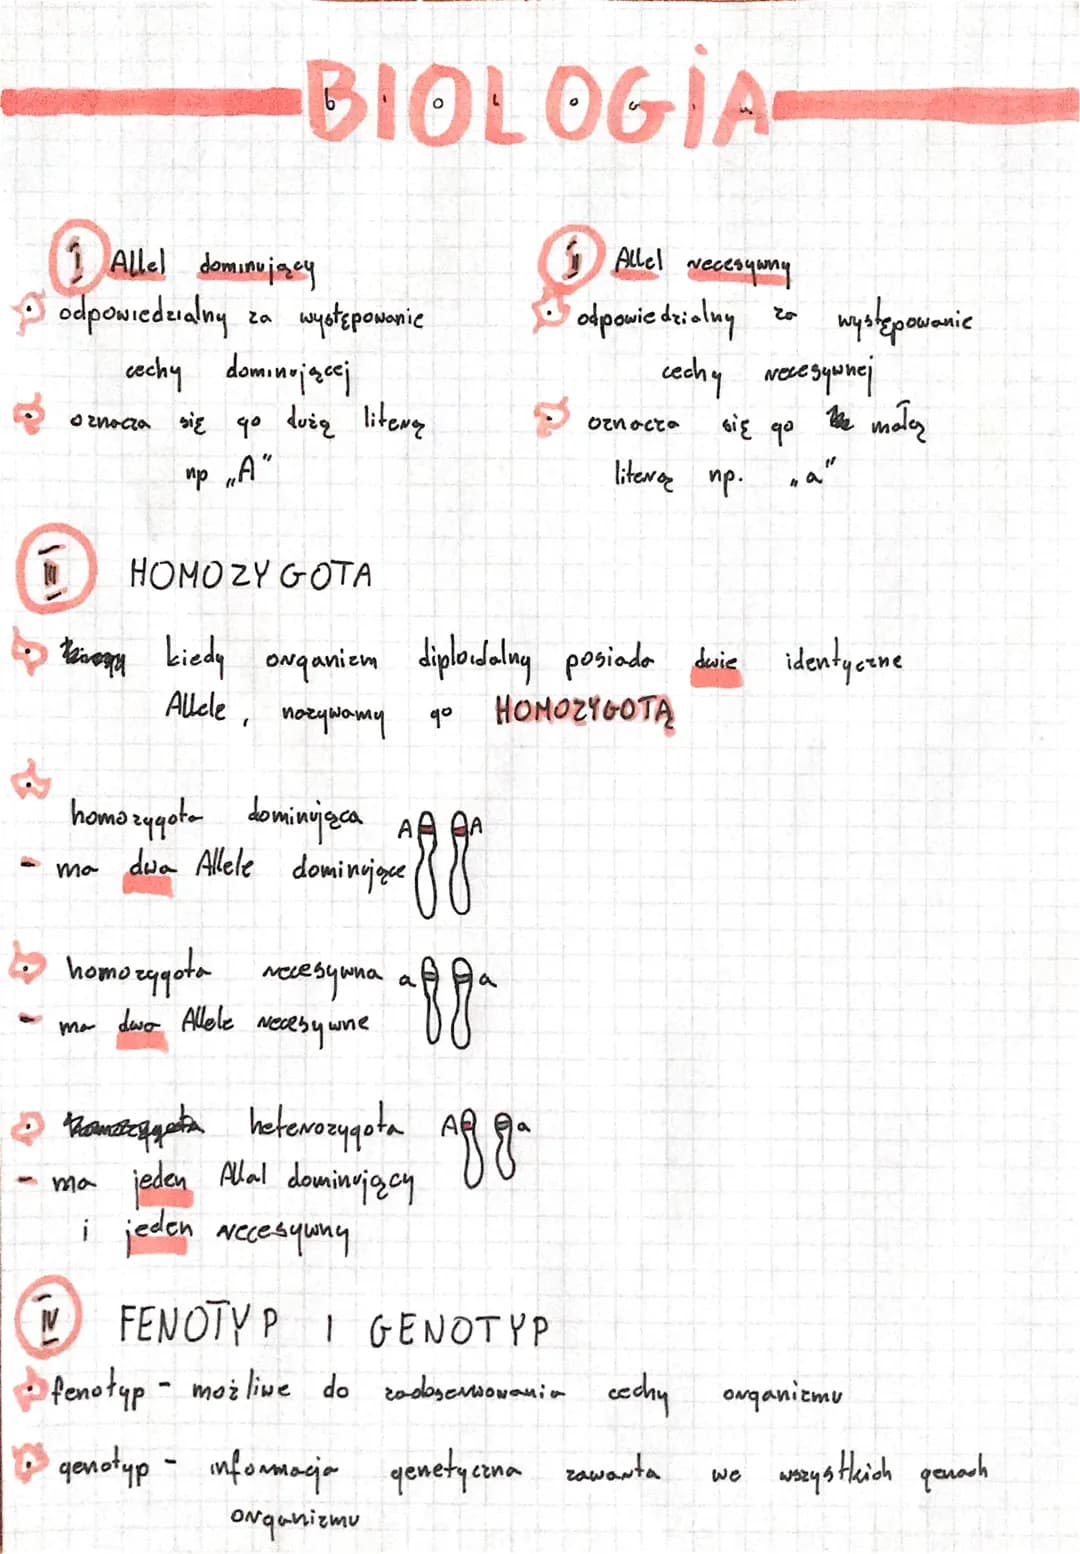 BIOLOGIA
b i o L o G i a
I Allel dominujący
odpowiedzialny za występowanie
cechy dominującej
oznacza się go dużą literą
np „A"
II Allel recesywny
odpowiedzialny za występowanie
cechy recesywnej
oznacza się go małą
literą np. „a"
III HOMOZYGOTA
kiedy organizm diploidalny posiada dwie identyczne
Allele, nazywamy go HOMOZYGOTĄ
homozygota dominująca A A
- ma dwa Allele dominujące
homozygota recesywna a a
- ma dwa Allele recesywne
heterozygota A a
- ma jeden Allal dominujący
i jeden recesywny
IV FENOTYP I GENOTYP
fenotyp - możliwe do zaobserwowania cechy organizmu
genotyp - informacja genetyczna zawarta we wszystkich genach
organizmu